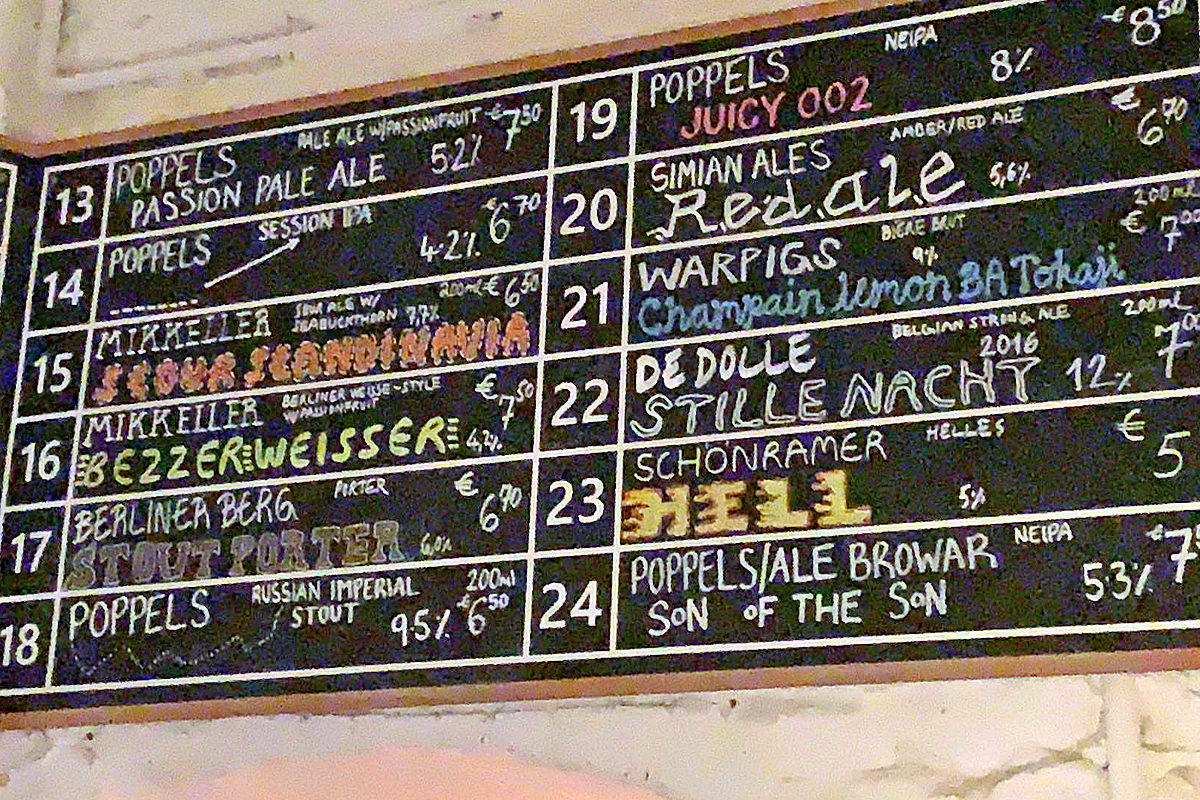 13
PALE ALE W/PASSIONFRUIT €7 50
POPPELS
PASSION PALE ALE 52%
14
SESSION IPA €6 70
POPPELS 4.2%
15
MIKKELLER SOUR ALE W/ 200ml €6 50
SEABUCKTHORN 7,7%
SCOUR SCANDINAVIA
16
MIKKELLER BERLINER WEISSE-STYLE €7 50
W/PASSIONFRUIT
BEZZERWEISSER 4,2%
17
BERLINER BERG PORTER €6 70
STOUT PORTER 6,0%
18
POPPELS RUSSIAN IMPERIAL 200ml
STOUT 95% €6 50
19
POPPELS NEIPA 8% €8 50
JUICY 002
20
SIMIAN ALES AMBER/RED ALE €6 70
Red ale 5,6%
21
WARPIGS BIERE BRUT 9% 200ml €7 00
Champain lemon BA Tokaji
22
DE DOLLE BELGIAN STRONG ALE 200ml
STILLE NACHT 2016 12% 7
23
SCHÖNRAMER HELLES € 5
HELL 5%
24
POPPELS/ALE BROWAR NEIPA €7
SON OF THE SON 53%